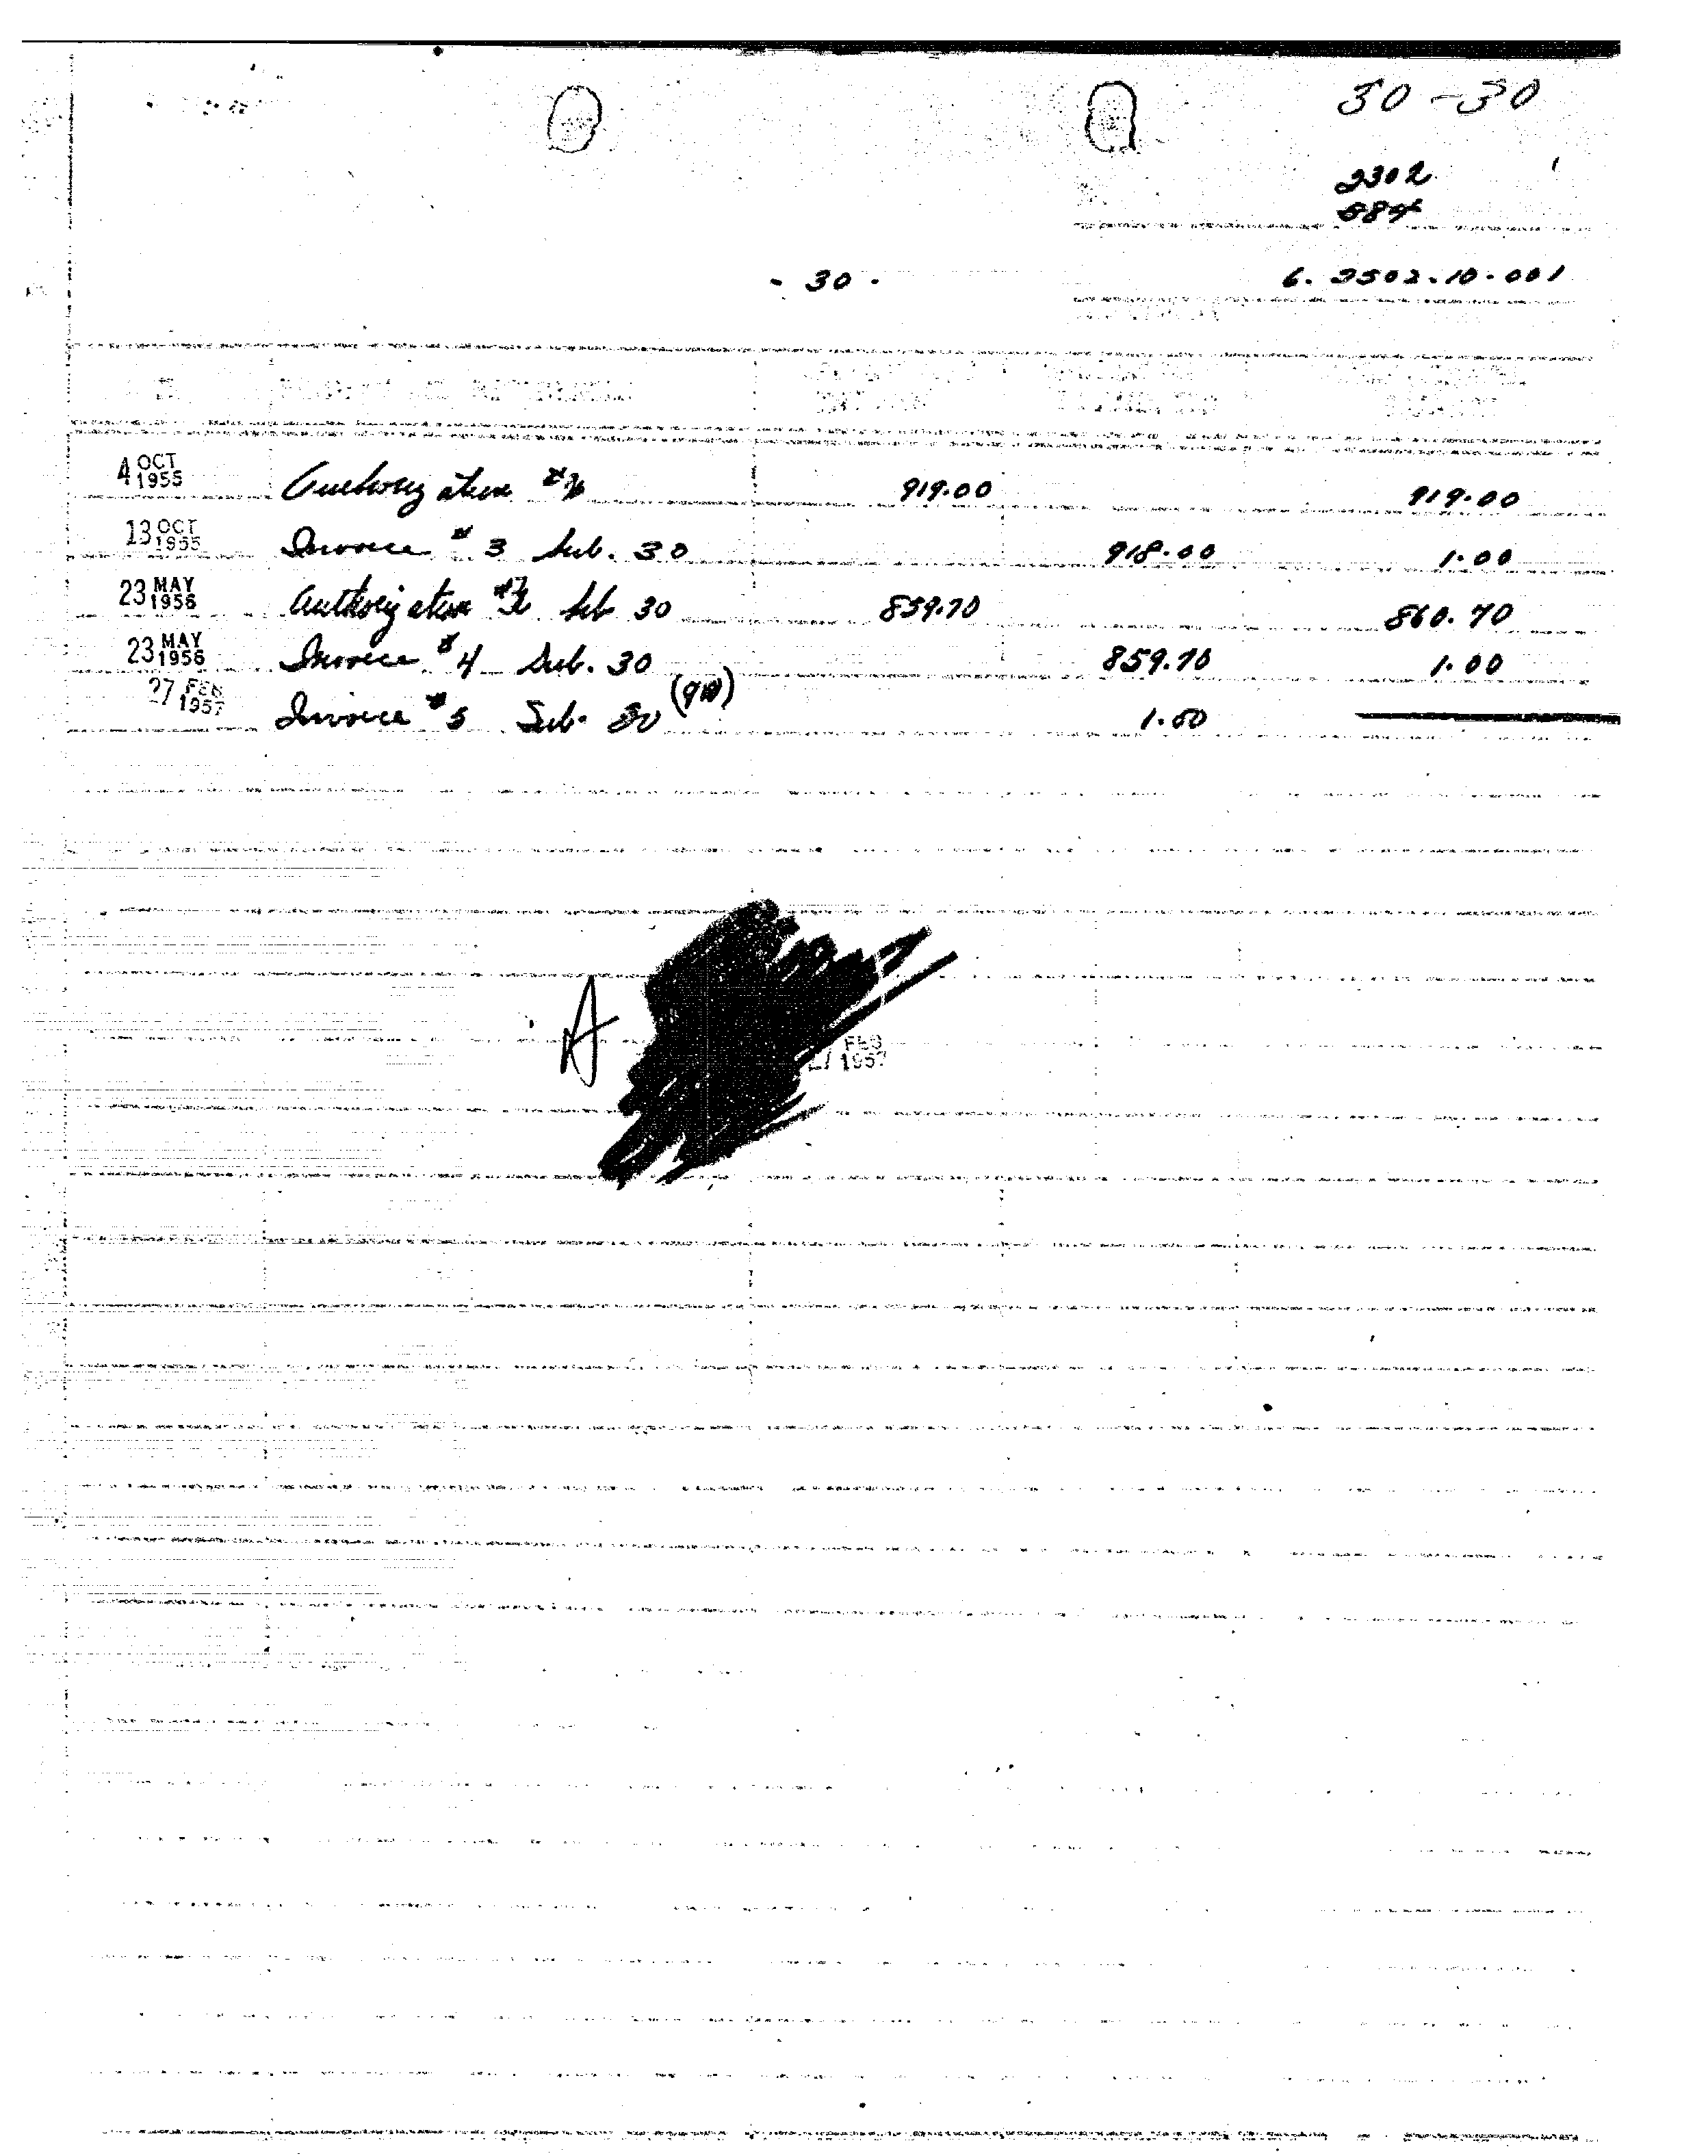 30-30
2302
- 30 -
6. 2502.10-001
4 OCT 1955 Authorization # 919.00 919.00
13 OCT 1955 Invoice # 3 Sub. 30 918.00 1.00
23 MAY 1956 Authorization # Sub 30 859.70 860.70
23 MAY 1956 Invoice # 4 Sub. 30 859.70 1.00
27 FEB 1957 Invoice # 5 Sub. 30 1.00
A
27 FEB 1957